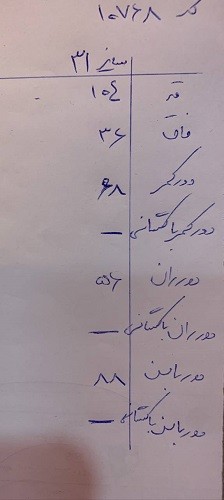 کد ۱۰۷۶۸
سایز ۳۱
قد ۱۰۴
فاق ۳۶
دور کمر ۶۸
دور کمر با کشسانی —
دور ران ۵۶
دور ران با کشسانی —
دور باسن ۸۸
دور باسن با کشسانی —